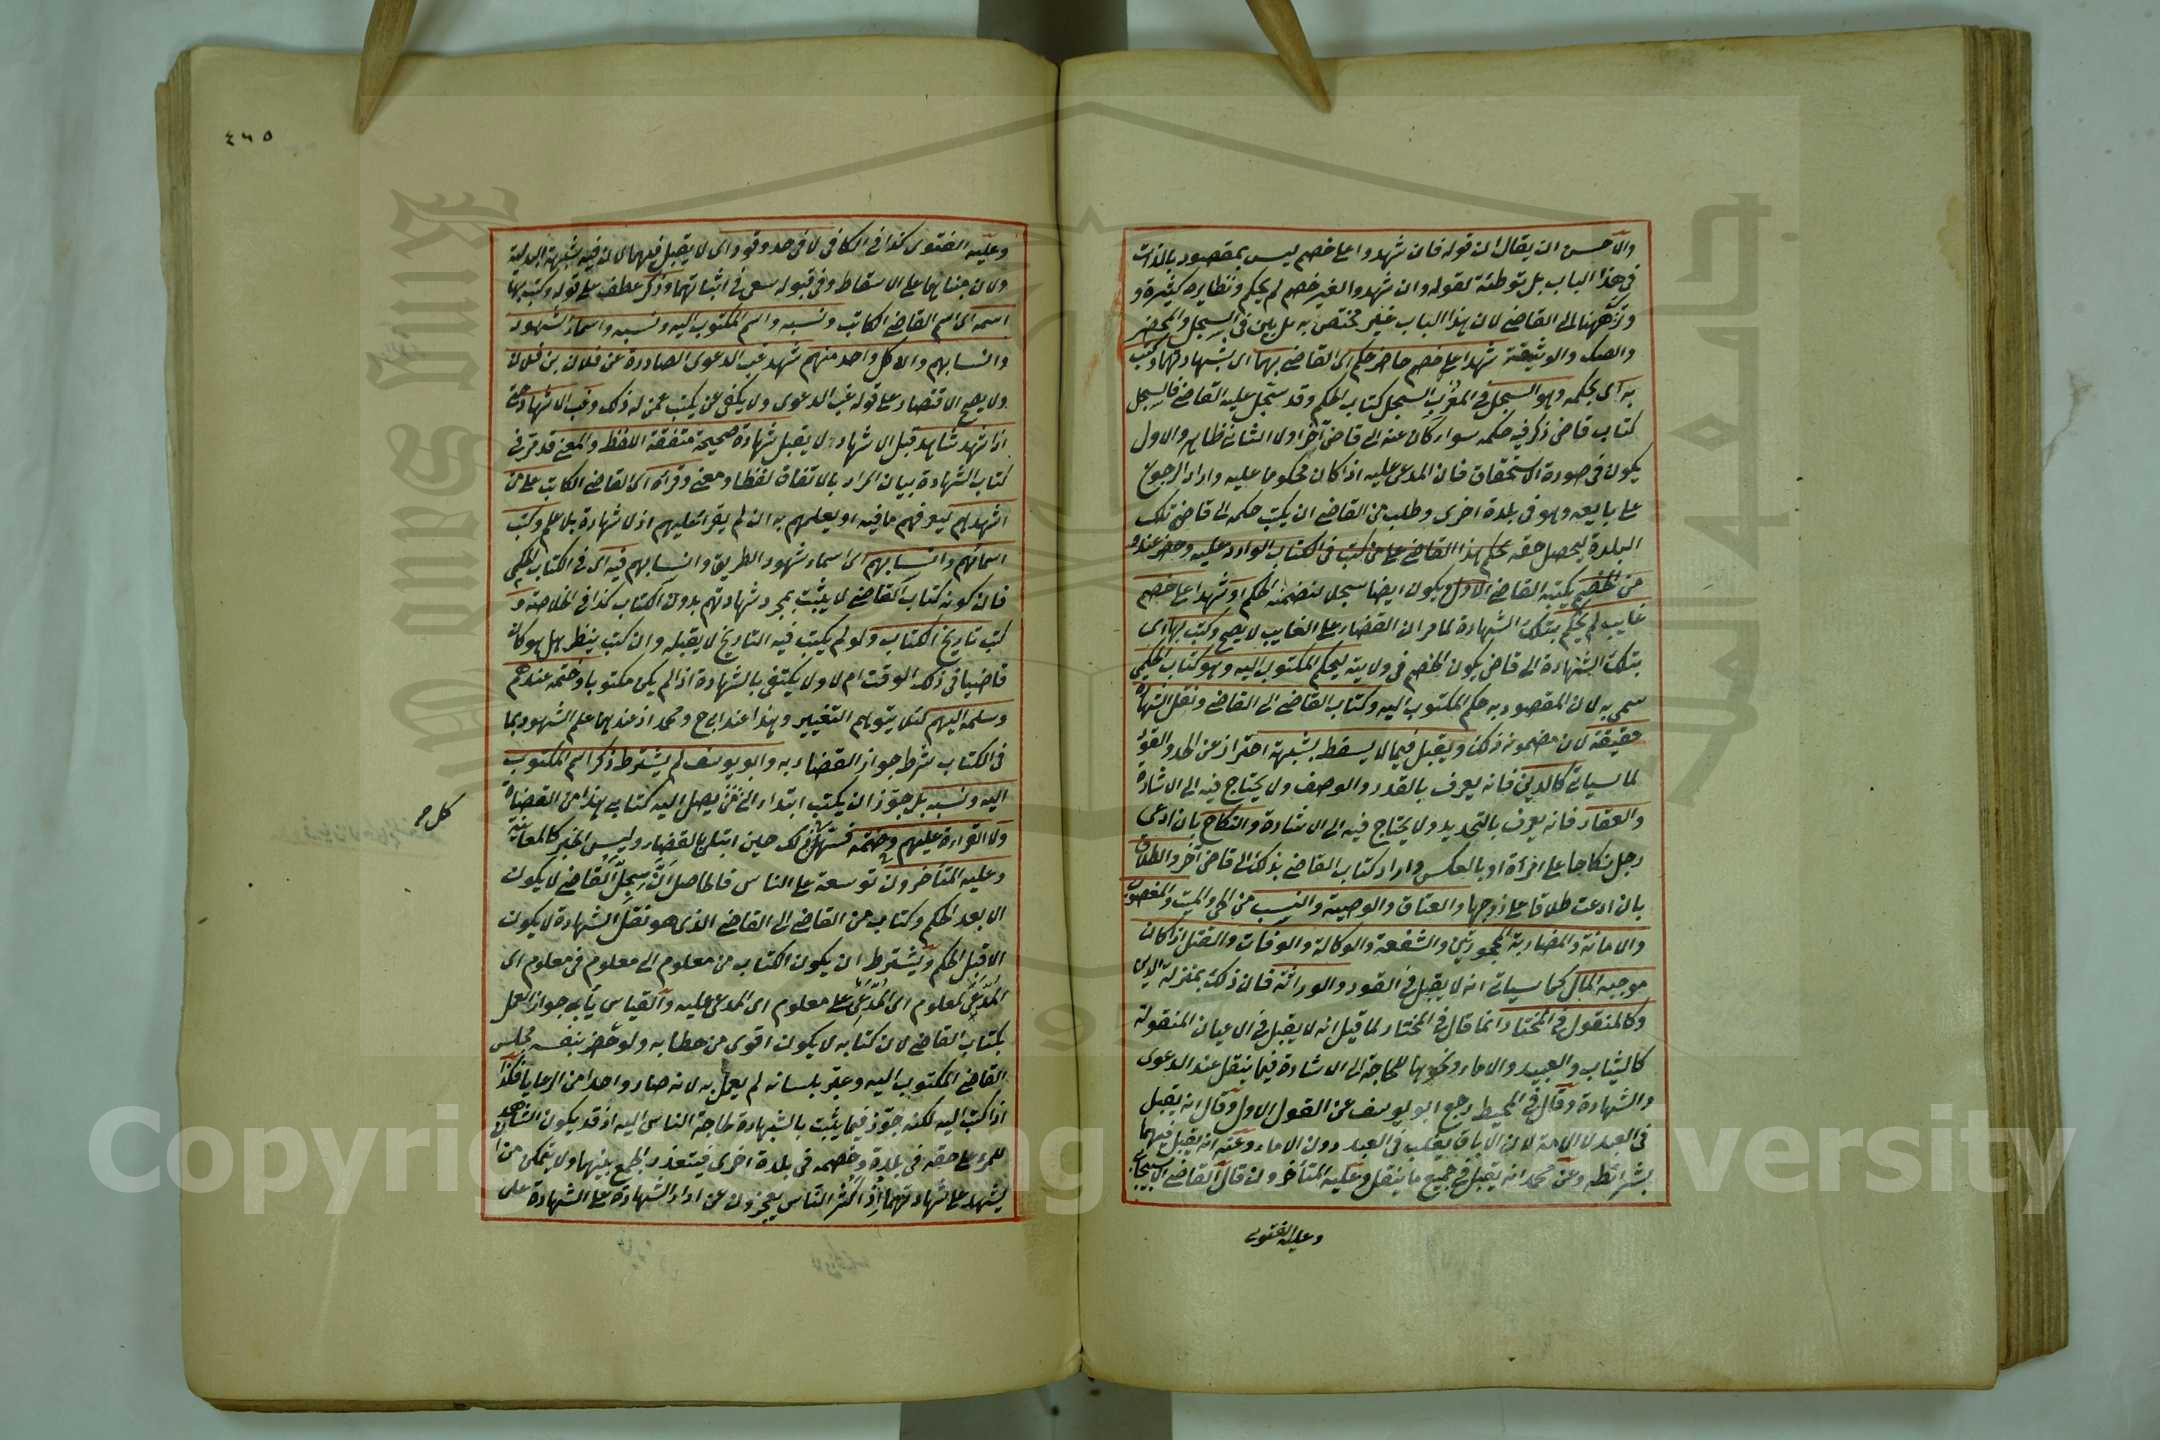 والاحسن ان يقال ان قوله فان شهدوا على خصم ليس بمقصود بالذات
في هذا الباب بل توطئة لقوله وان شهدوا لغير خصم لم يحكم ونظايره كثيرة و
الى القاضي لان هذا الباب غير مختص به بل بين في السجل والمحضر
والصك والوثيقة شهدا على خصم حاضر حكم اى القاضي بها اى بشهادتهما وكتب
به اى بحكمه وهو السجل في المغرب السجل كتاب الحكم وقد سجل عليه القاضي فالسجل
كتاب قاض ذكر فيه حكمه سواء كان عنه الى قاض آخر اولا الثانى ظاهر والاول
يكون في صورة الاستحقاق فان المدعى عليه اذا كان محكوما عليه واراد الرجوع
على بايعه وهو في بلدة اخرى وطلب من القاضي ان يكتب حكمه الى قاضي تلك
البلدة ليحصل حقه بحكم هذا القاضي على من كتب في الكتاب الوارد عليه وحضر عنده
من الخصم يكتبه القاضي الاول ويكون ايضا سجلا لتضمنه الحكم او شهدا على خصم
غايب لم يحكم بتلك الشهادة لما مر ان القضاء على الغايب لا يصح وكتب بها اى
بتلك الشهادة الى قاض يكون الخصم في ولايته ليحكم المكتوب اليه وهو كتاب الحكمي
سمي به لان المقصود به حكم المكتوب اليه وكتاب القاضي الى القاضي ونقل الشهادة
حقيقة لان مضمونه ذلك ويقبل فيما لا يسقط بشبهة احتراز عن الحد والقود
لما سيأتي كالدين فانه يعرف بالقدر والوصف ولا يحتاج فيه الى الاشارة
والعقار فانه يعرف بالتحديد ولا يحتاج فيه الى الاشارة والنكاح بان ادعى
رجل نكاحا على امرأة او بالعكس واراد كتاب القاضي بذلك الى قاض آخر والطلاق
بان ادعت طلاقا على زوجها والعتاق والوصية والنسب من الحي والميت والمغصوب
والامانة والمضاربة المجحودتين والشفعة والوكالة والوفات والقتل اذا كان
موجبه المال كما سيأتي انه لا يقبل في القود والوراثة فان ذلك بمنزلة الدين
وكالمنقول في المختار انما قال في المختار لما قيل انه لا يقبل في الاعيان المنقولة
كالثياب والعبيد والاماء ونحوها للحاجة الى الاشارة فيما ينقل عند الدعوى
والشهادة وقال في المحيط رجع ابو يوسف عن القول الاول وقال انه يقبل
في العبد لا الامة لان الاباق يغلب في العبد دون الاماء وعنه انه يقبل فيهما
بشرائطه وعن محمد انه يقبل في جميع ما ينقل وعليه المتأخرون قال القاضي الاسبيجابي
وعليه الفتوى
٤٦٥
وعليه الفتوى كذا في الكافي لا في حد وقود اى لا يقبل فيهما لان فيه شبهة البدلية
ولان مبناهما على الاسقاط وفي قبوله سعى في اثباتهما وذكر عطف على قوله وكتب بها
اسمه اى اسم القاضي الكاتب ونسبه واسم المكتوب اليه ونسبه واسماء الشهود
وانسابهم والا كل واحد منهم شهد غب الدعوى الصادرة عن فلان بن فلان
ولا يصح الاقتصار على قوله غب الدعوى ولا يكفى عن يكتب عمن له ذلك وغب الاشهاد حتى
اذا شهد شاهد قبل الاشهاد لا يقبل شهادة صحيحة متفقة اللفظ والمعنى قد مر في
كتاب الشهادة بيان المراد بالاتفاق لفظا ومعنى وقرأه اى القاضي الكاتب على من
اشهدهم ليعرفهم ما فيه او يعلمهم به ان لم يقرأ عليهم اذ لا شهادة بلا علم وكتب
اسمائهم وانسابهم اى اسماء شهود الطريق وانسابهم فيه اى في الكتاب الحكمي
فان كونه كتاب القاضي لا يثبت بمجرد شهادتهم بدون الكتاب كذا في الخلاصة و
كتب تاريخ الكتاب ولو لم يكتب فيه التاريخ لا يقبله وان كتب ينظر هل هو كان
قاضيا في ذلك الوقت ام لا ولا يكتفى بالشهادة اذا لم يكن مكتوبا وختمه عندهم
وسلمه اليهم كيلا يتوهم التغيير وهذا عند ابي ح ومحمد اذ عندهما علم الشهود بما
في الكتاب شرط جواز القضاء به وابو يوسف لم يشترط ذكر اسم المكتوب
اليه ونسبه بل جوز ان يكتب ابتداء الى من يصل اليه كتابي هذا من القضاة
ولا القراءة عليهم وختمه فسهل في ذلك حين ابتلى بالقضاء وليس الخبر كالمعاينة
كل ح
وعليه المتأخرون توسعة على الناس فالحاصل ان سجل القاضي لا يكون
الا بعد الحكم وكتاب من القاضي الى القاضي الذى هو نقل الشهادة لا يكون
الا قبل الحكم ويشترط ان يكون الكتاب من معلوم الى معلوم في معلوم اى
المدعى لمعلوم اى المدعى على معلوم اى المدعى عليه والقياس يأبى جواز العمل
بكتاب القاضي لان كتابه لا يكون اقوى من خطابه ولو حضر بنفسه مجلس
القاضي المكتوب اليه وعبر بلسانه لم يعمل به لانه صار واحدا من الرعايا فكذا
اذا كتب اليه لكنه جوز فيما يثبت بالشهادة لحاجة الناس اليه اذ قد يكون الشاهدان
للمرء على حقه في بلدة وخصمه في بلدة اخرى فيتعذر الجمع بينهما ولا يتمكن من
يشهد على شهادتهما اذ اكثر الناس يعجزون عن اداء الشهادة على الشهادة على
Copyright © King Saud University
King Saud University
1957